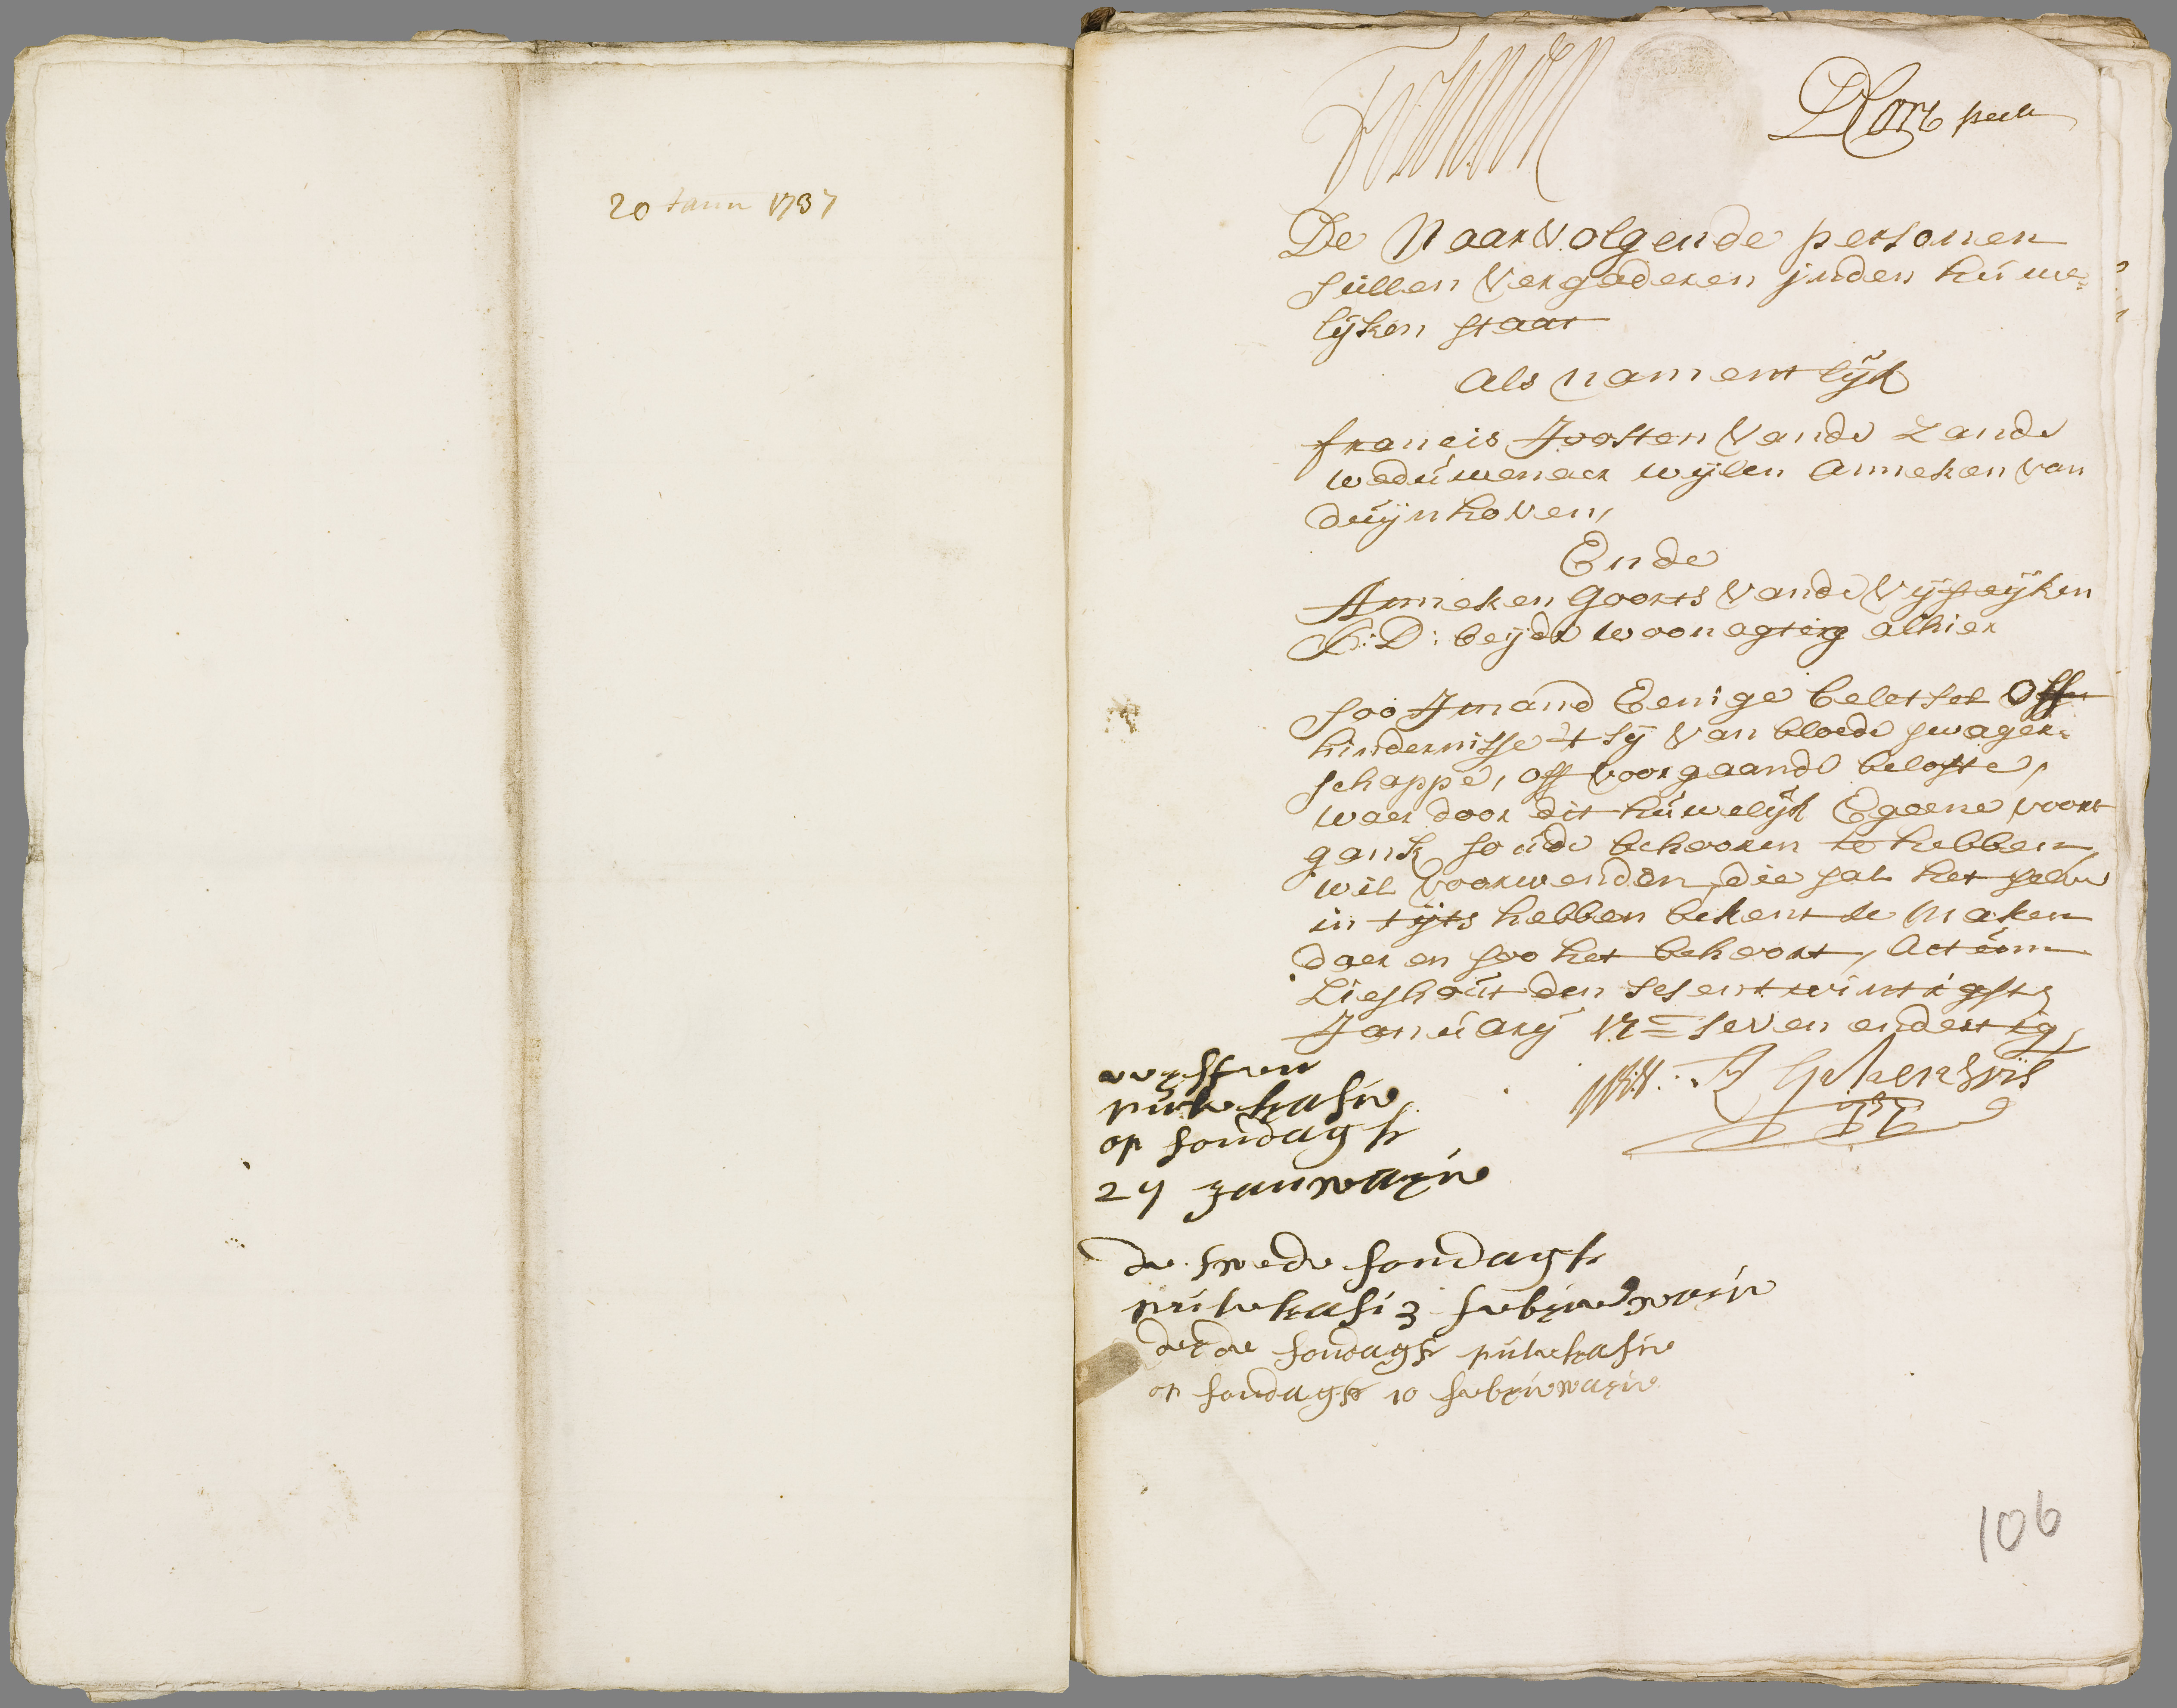 20 Janu 1737
De Naarvolgende personen
sullen Vergaderen jnden huwe=
lijken staat
Als namentlijk
francis Joosten Vande Zande
weduwenaer wijlen Anneken van
duijnhoven,
Ende
Anneken Goorts Vande Vijfeijken
J: D: beijde woonagterg alhier
soo Jmand Eenige beletsel Off
hindernisse 't sij Van bloede swager=
schappe, off voorgaande belofte,
waer door dit huwelijk Egeene voort
gank soude behooren te hebben
wil voorwenden, die sal het selve
in tijts hebben bekent te maken
daer en soo het behoort, Actum
Lieshout den sesentwintigste
January 17= seven endertig
eersten
pulekasie
op sondagh
27 januwarie
de twede sondagh
pulekasi 3 febriewarie
derde sondagh pulekasie
op sondagh 10 febriewarie
106